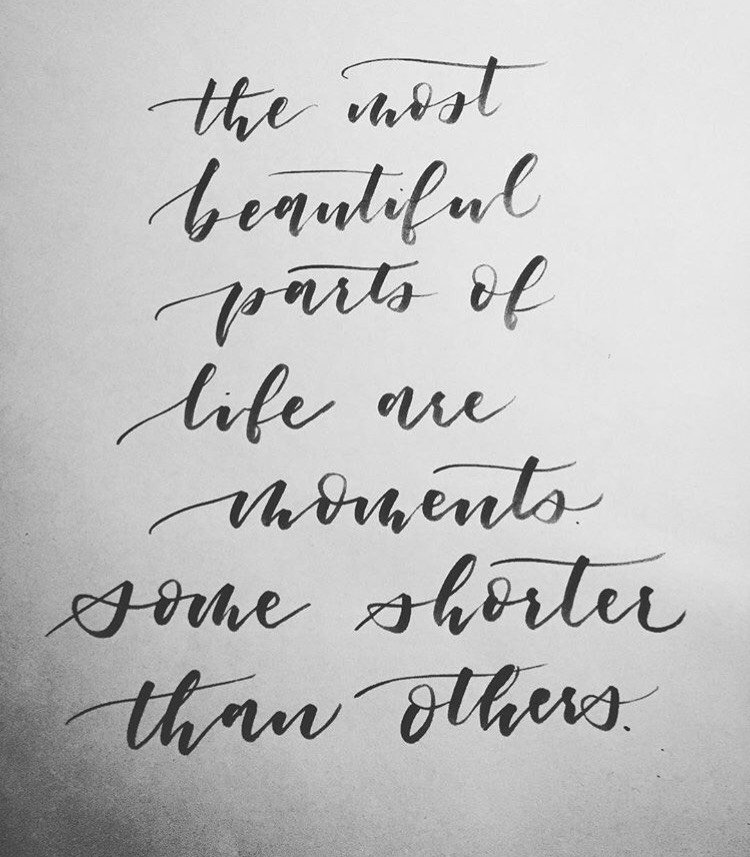 the most
beautiful
parts of
life are
moments.
some shorter
than others.